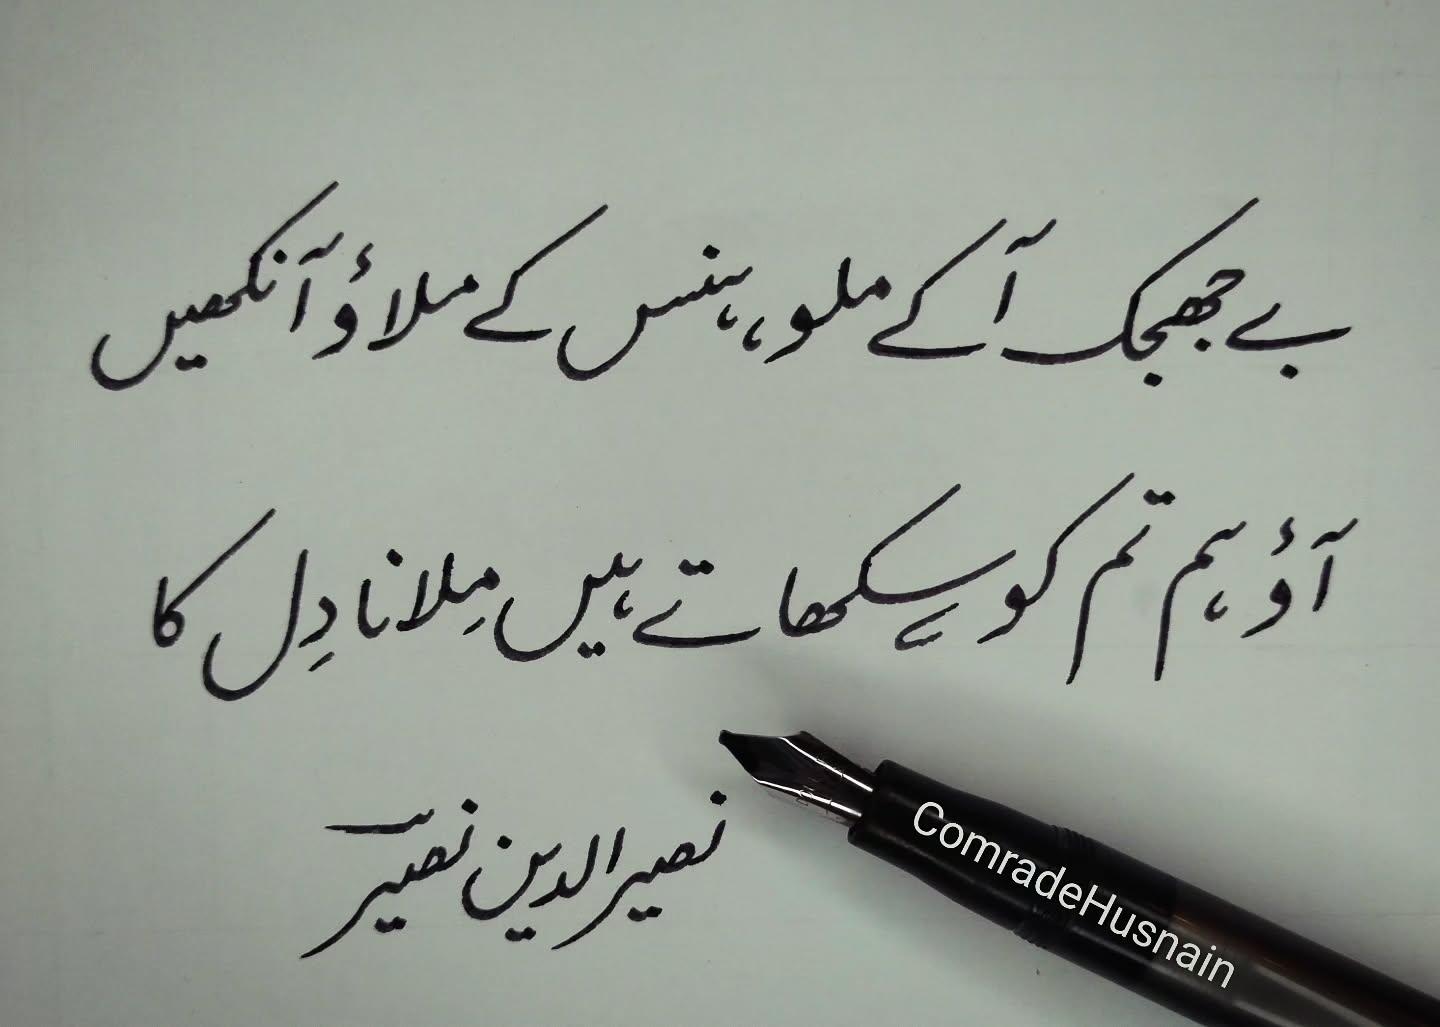 بے جھجک آ کے ملو، ہنس کے ملاؤ آنکھیں
آؤ ہم تم کو سِکھاتے ہیں مِلانا دِل کا
نصیر الدین نصیرؔ
ComradeHusnain